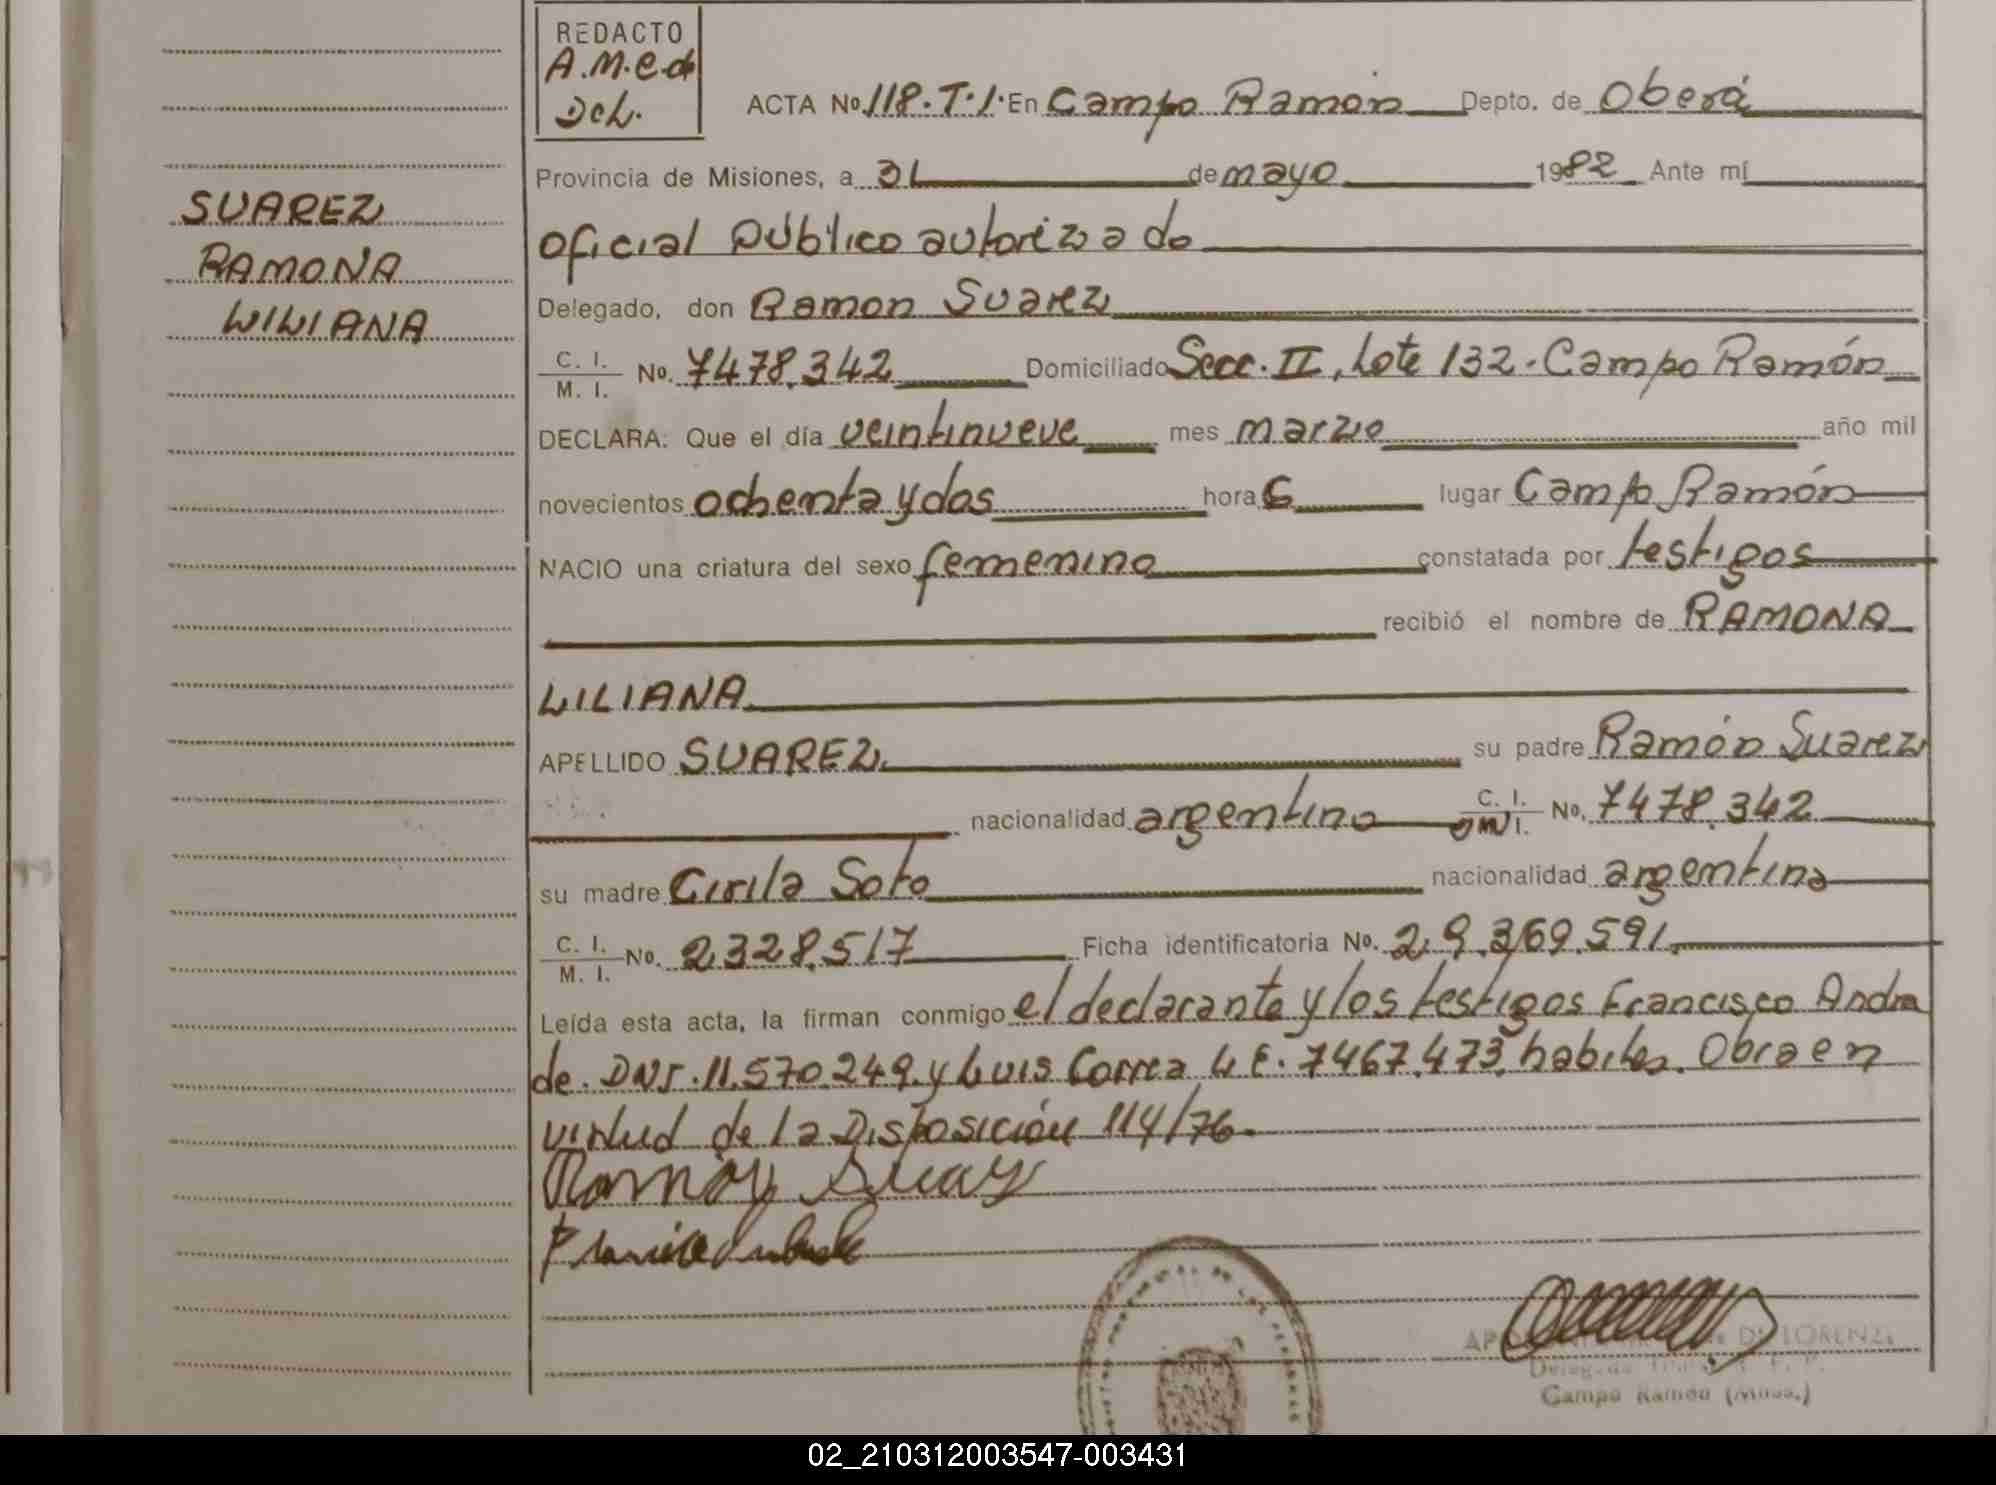 REDACTO
A.M.C. de
Del.
ACTA No. 118. T. I. En Campo Ramón Depto. de Oberá
Provincia de Misiones, a 31 de mayo 1982 Ante mí
oficial público autorizado
SUAREZ
RAMONA
LILIANA
Delegado, don Ramon Suarez
C. I. M. I. No. 7478.342 Domiciliado Secc. II, Lote 132 - Campo Ramón
DECLARA: Que el día veintinueve mes marzo año mil
novecientos ochenta y dos hora 6 lugar Campo Ramón
NACIO una criatura del sexo femenino constatada por testigos
recibió el nombre de RAMONA
LILIANA
APELLIDO SUAREZ su padre Ramón Suarez
nacionalidad argentino C. I. M. I. No. 7478.342
su madre Cirila Soto nacionalidad argentina
C. I. M. I. No. 2328.517 Ficha identificatoria No. 29.369.591
Leída esta acta, la firman conmigo el declarante y los testigos Francisco Andra
de. DNI. 11.570.249. y Luis Correa L E. 7467.473, habiles. Obra en
virtud de la Disposición 114/76.
Ramón Suarez
DI LORENZI
Campo Ramón (Mnes.)
02_210312003547-003431